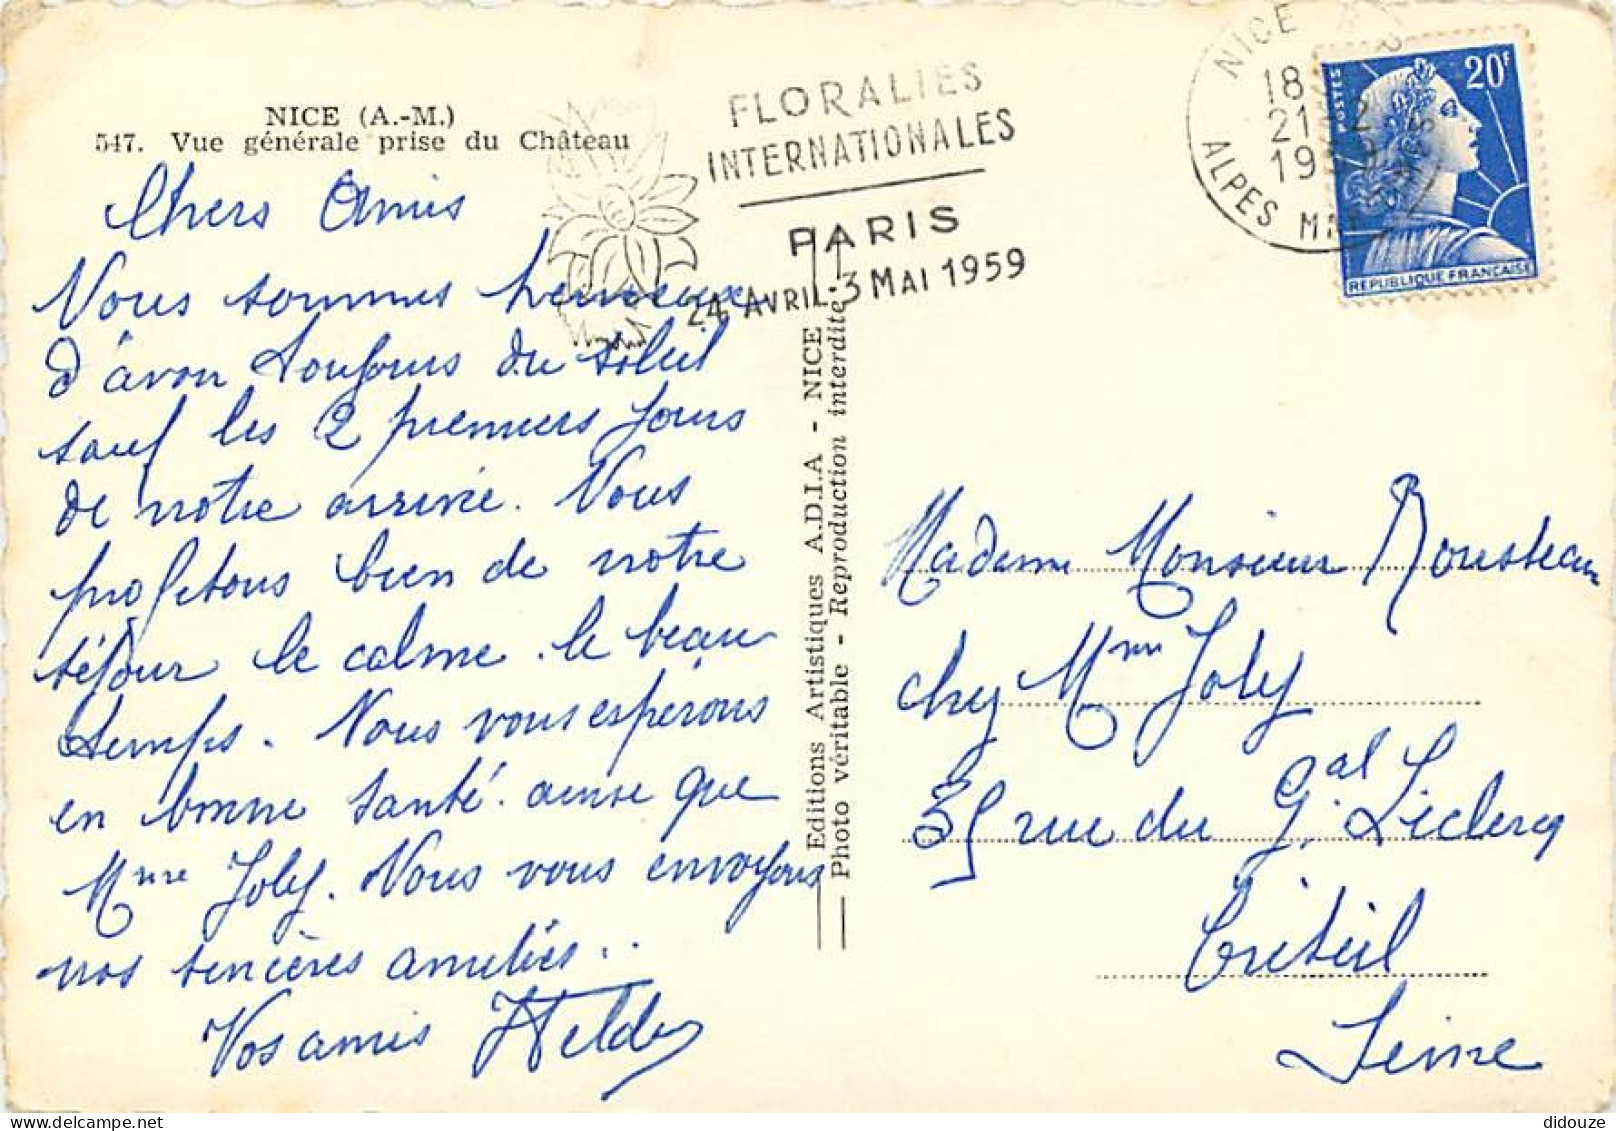 NICE (A.-M.)
547. Vue générale prise du Château
Chers Amis
Nous sommes heureux
d'avoir toujours du soleil
sauf les 2 premiers jours
de notre arrivée. Nous
profitons bien de notre
séjour le calme. le beau
temps. Nous vous espérons
en bonne santé. ainsi que
Mme Joly. Nous vous envoyons
nos sincères amitiés..
Vos amis
FLORALIES
INTERNATIONALES
PARIS
24 AVRIL-3 MAI 1959
Editions Artistiques A.D.I.A - NICE
Photo véritable - Reproduction interdite
NICE
18
21-2
1959
ALPES MMES
POSTES
20F
REPUBLIQUE FRANCAISE
Madame Monsieur Rousteau
chez Mme Joly
35 rue du Gal. Leclercq
Créteil
Seine
didouze